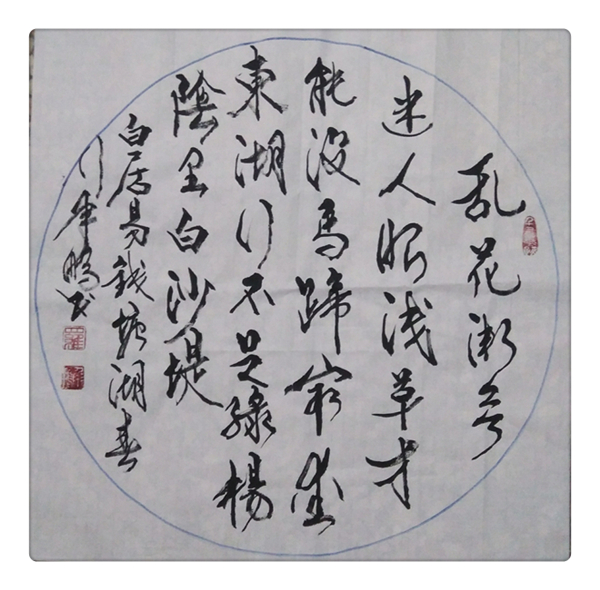 乱花渐欲
迷人眼浅草才
能没马蹄最爱
東湖行不足绿楊
陰里白沙堤
白居易钱塘湖春
行